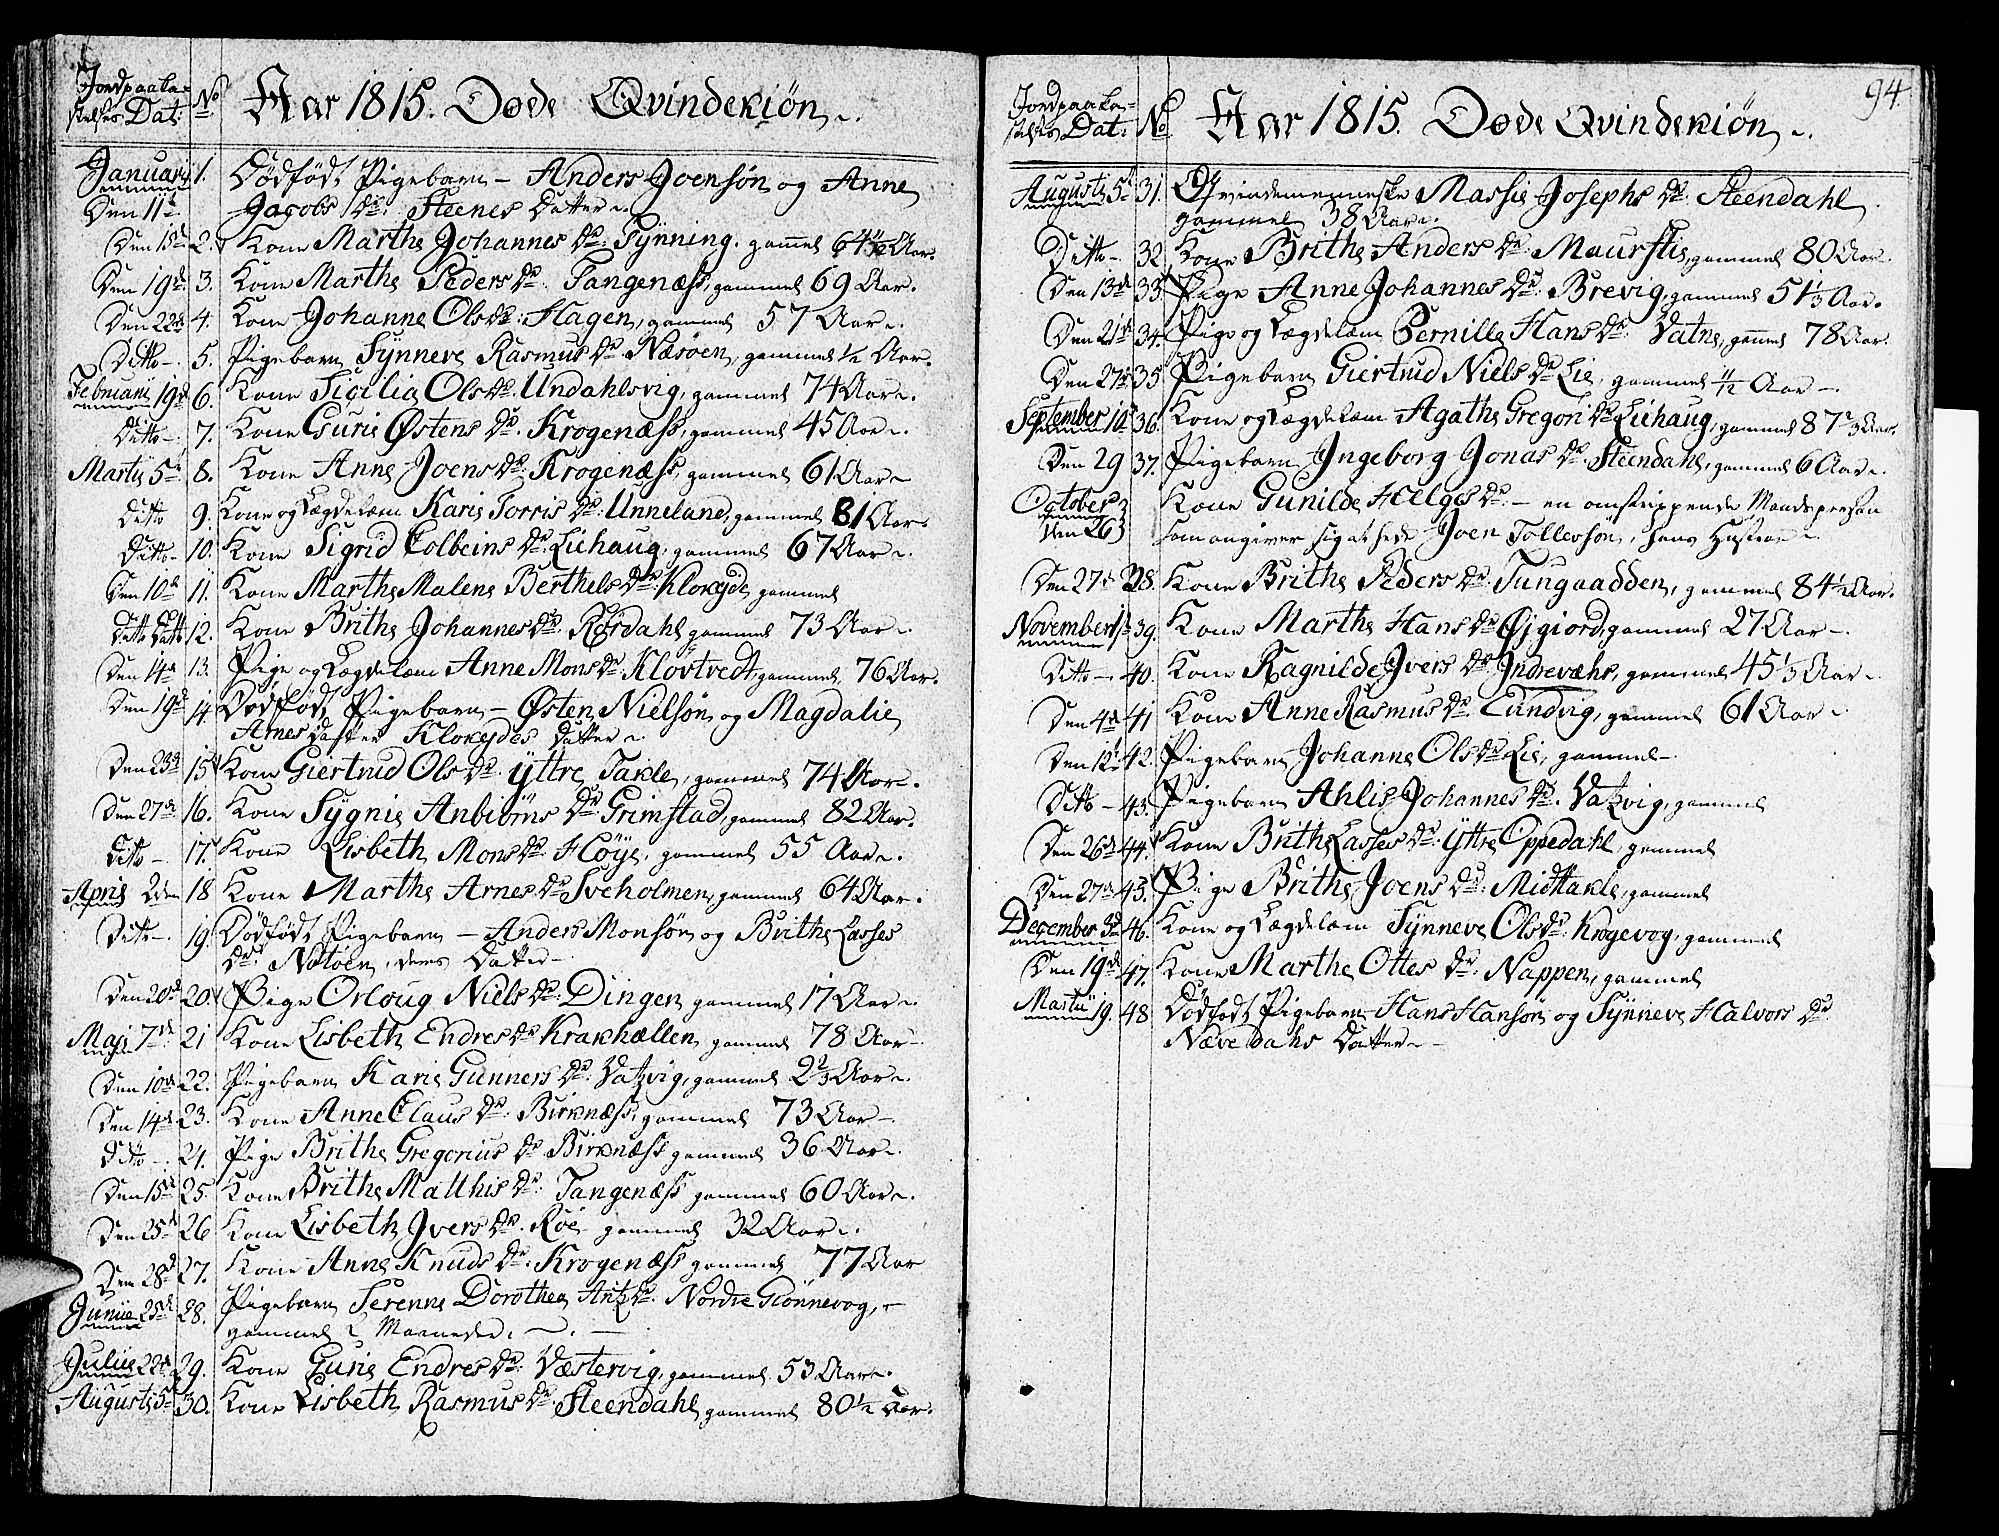 Jordpaaka-
stelses Dat: No Aar 1815. Døde Qvindekiøn
Januarii 1. Dödfödt Pigebarn - Anders Joensön og Anne
Den 11te Jacobs Dr: Steenes Datter
Den 15de 2. Kone Marthe Johannes Dr: Tÿnning, gammel 64 Aar.
Den 19de 3. Kone Marthe Peders Dr: Tangenæss, gammel 69 Aar.
Den 22de 4. Kone Johanne Ols Dr: Hagen, gammel 57 Aar.
Ditto - 5. Pigebarn Sÿnneve Rasmus Dr: Næsöen, gammel 1/2 Aar.
Februarii 19de 6. Kone Sicilia Ols Dr: Undahlsvig, gammel 74 Aar.
Ditto - 7. Kone Guri Østens Dr: Krogenæss, gammel 45 Aar.
Martii 5te 8. Kone Anne Joens Dr: Krogenæss, gammel 61 Aar
Ditto 9. Kone og Lægdelæm Kari Torris Dr: Unneland, gammel 81 Aar
Ditto - 10. Kone Sigrid Colbeins Dr: Liehaug, gammel 67 Aar.
Den 10de 11. Kone Marthe Malene Berthels Dr: Klokeÿde gammel
Ditto Ditto 12. Kone Brithe Johannes Dr: Rørdahl gammel 73 Aar.
Den 14de 13. Pige og Lægdelæm Anne Mons Dr: Klövtvedt, gammel 76 Aar.
Den 19de 14. Dödfödt Pigebarn - Østen Nielsön og Magdalie
Arnes Datter Klokeÿdes Datter
Den 23de 15. Kone Giertrud Ols Dr: Ÿttre Takle, gammel 74 Aar.
Den 27de 16. Kone Sÿgnie Anbiörns Dr: Grimstad, gammel 82 Aar.
Ditto - 17. Kone Lisbeth Mons Dr: Höÿe, gammel 55 Aar.
April 2den 18 Kone Marthe Arnes Dr: Sveholmen, gammel 64 Aar.
Ditto - 19. Dödfödt Pigebarn - Anders Monsön og Brithe Lasses
Dr: Notöen, deres Datter -
Den 20de 20. Pige Orloug Niels Dr: Dingen gammel 17 Aar.
Maji 7de 21 Kone Lisbeth Endres Dr: Krakhællen gammel 78 Aar
Den 10de 22. Pigebarn Karie Gunners Dr: Vatzvig, gammel 2 2/3 Aar.
Den 14de 23. Kone Anne Claus Dr: Birknæss, gammel 73 Aar -
Ditto - 24. Pige Brithe Gregorius Dr: Birknæss gammel 36 Aar.
Den 15de 25. Kone Brithe Matthis Dr: Tangenæss gammel 60 Aar.
Den 25de 26 Kone Lisbeth Ivers Dr: Röe gammel 32 Aar.
Den 28de 27. Kone Anne Knuds Dr: Krogenæss gammel 77 Aar
Junii 25de 28. Pigebarn Serenne Dorothea Antz Dr: Nordre Giönnevog,
gammel 2 Maaneder.
Julii 22de 29. Kone Gurie Endres Dr: Væstervig, gammel 53 Aar.
Augusti 5te 30. Kone Lisbeth Rasmus Dr: Steendahl gammel 80 1/2 Aar.
94.
Jordpaaka-
stelses Dat: No Aar 1815. Døde Qvindekiøn
Augusti 5te 31. Qvindemenneske Massie Josephs Dr: Steendahl
gammel 38 Aar.
Ditto - 32. Kone Brithe Anders Dr: Maurstis, gammel 80 Aar.
Den 13de 33. Pige Anne Johannes Dr: Brevig, gammel 51 1/3 Aar.
Den 21de 34. Pige og Lægdelæm Pernille Hans Dr: Vatne, gammel 78 Aar.
Den 27de 35 Pigebarn Giertrud Niels Dr: Lie, gammel 11/12 Aar -
September 10de 36. Kone og Lægdelæm Agathe Gregori Dr: Liehaug, gammel 87 2/3 Aar.
Den 29 37. Pigebarn Ingeborg Jonas Dr: Steendahl, gammel 6 Aar.
October Kone Gunilde Helges Dr: - en omstrippende Mandsperson
Den 26 som angiver sig at hede Joen Tollevsön, hans Hustroe
Den 27de 38. Kone Brithe Peders Dr: Tungaadden, gammel 84 1/2 Aar.
November 1te 39. Kone Marthe Hans Dr: Øÿgiord, gammel 27 Aar -
Ditto - 40. Kone Ragnilde Ivers Dr: Indrevæhr, gammel 45 1/3 Aar -
Den 4de 41 Kone Anne Rasmus Dr: Lundvig, gammel 61 Aar
Den 12te 42. Pigebarn Johanne Ols Dr: Lie, gammel -
Ditto - 43. Pigebarn Ahlis Johannes Dr: Vatzvig, gammel
Den 26de 44. Kone Brithe Lasses Dr: Ÿttre Oppedahl, gammel
Den 27de 45. Pige Brithe Joens Dr: Midttakle, gammel
December 3de 46. Kone og Lægdelæm Sÿnneve Ols Dr: Krogevog, gammel
Den 19de 47. Kone Marthe Ottes Dr: Nappen, gammel
Martii 19. 48 Dödfödt Pigebarn Hans Hansön og Sÿnneve Halvors Dr:
Nævedahs Datter -